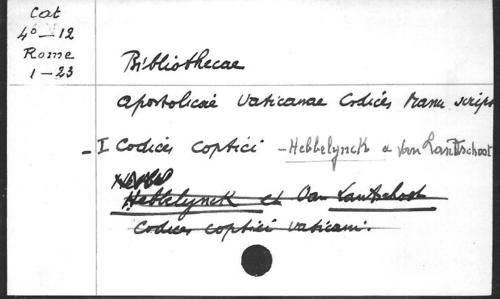 Cat
4° - 12
Rome
1-23
Bibliothecae
apostolicae Vaticanae Codices Manu scrip
- I Codices coptici - Hebbelynck & Van Lantschoot
Hebbelynck et Van Lantschoot
Codices coptici vaticani.